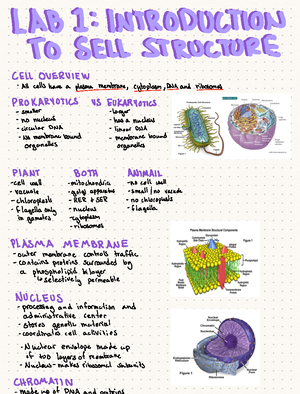 LAB 1: INTRODUCTION
TO SELL STRUCTURE
CELL OVERVIEW
- All cells have a plasma membrane, cytoplasm, DNA and ribosomes
PROKARYOTICS VS EUKARYOTICS
- smaller
- no nucleus
- circular DNA
- No membrane bound
organelles
- larger
- has a nucleus
- linear DNA
- membrane bound
organelles
PLANT
- cell wall
- vacuole
- chloroplasts
- flagella only
in gametes
BOTH
- mitochondria
- golgi apparatus
- RER + SER
- nucleus
- cytoplasm
- ribosomes
ANIMAL
- no cell wall
- small/no vacuole
- no chloroplasts
- flagella
PLASMA MEMBRANE
- outer membrane controls traffic
- contains proteins surrounded by
a phospholipid bilayer
↳ selectively permeable
Plasma Membrane Structural Components
Figure 1
NUCLEUS
- processing and information and
administrative center
- stores genetic material
- coordinates cell activities
- Nuclear envelope made up
of two layers of membrane
- Nucleus - makes ribosomal subunits
Figure 1
CHROMATIN
- made up of DNA and proteins